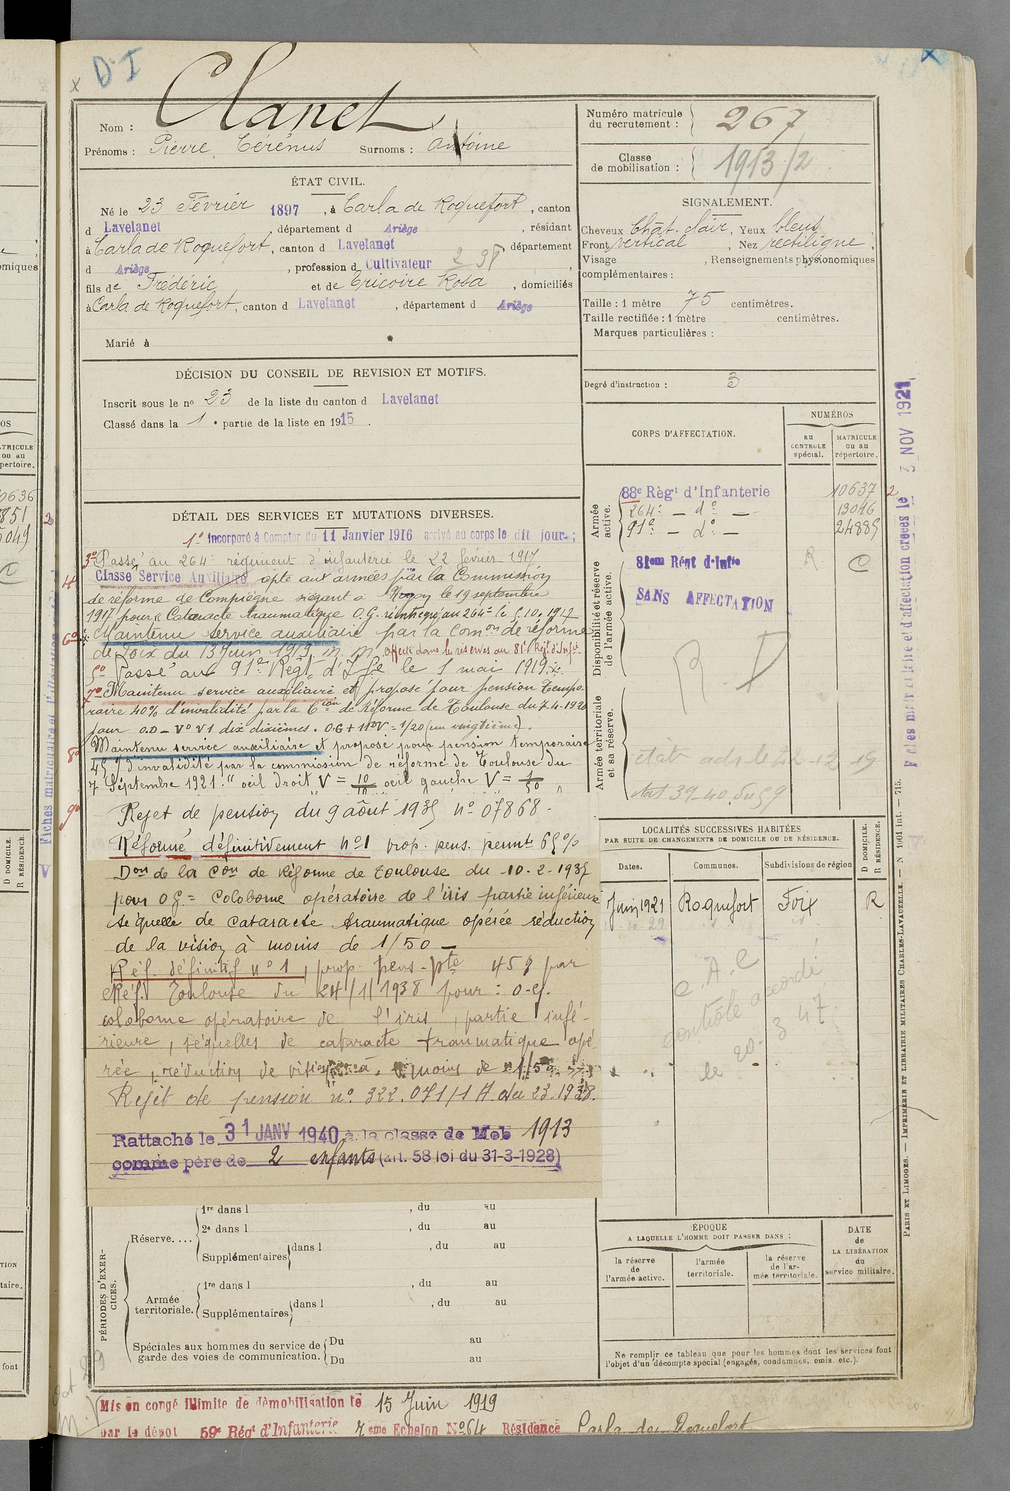 D I
Clanet
Nom :
Prénoms : Pierre Térénus Surnoms : Antoine
Numéro matricule
du recrutement : 267
Classe
de mobilisation : 1913/2
ÉTAT CIVIL.
Né le 23 Février 1897, à Carla de Roquefort, canton
d Lavelanet, département d Ariège, résidant
à Carla de Roquefort, canton d Lavelanet, département
d Ariège, profession d Cultivateur
fils de Frédéric et de Ericoire Rosa, domiciliés
à Carla de Roquefort, canton d Lavelanet, département d Ariège
Marié à
SIGNALEMENT.
Cheveux Chât. clair, Yeux bleus
Front vertical, Nez rectiligne,
Visage , Renseignements physionomiques
complémentaires :
Taille : 1 mètre 75 centimètres.
Taille rectifiée : 1 mètre centimètres.
Marques particulières :
Degré d'instruction : 3
DÉCISION DU CONSEIL DE REVISION ET MOTIFS.
Inscrit sous le nº 23 de la liste du canton d Lavelanet
Classé dans la 1 e partie de la liste en 1915.
CORPS D'AFFECTATION.
NUMÉROS
AU CONTROLE spécial.
MATRICULE ou au répertoire.
Armée active.
88e Régt d'Infanterie 10637
264e — dº — 13046
91e — dº — 24885
Disponibilité et réserve de l'armée active.
81em Régt d'Infie
SANS AFFECTATION
R D
Armée territoriale et sa réserve.
DÉTAIL DES SERVICES ET MUTATIONS DIVERSES.
1º Incorporé à Compter du 11 Janvier 1916 arrivé au corps le dit jour ;
3º Passé au 264e régiment d'infanterie le 22 février 1917
4º Classe Service Auxiliaire apte aux armées par la Commission
de réforme de Compiègne séant à Noyon le 19 septembre
1917 pour Cataracte traumatique O.G. réintégré au 264e le 5.10.1917
6º Maintenu service auxiliaire par la Comon de réforme
de Foix du 13 Juin 1919 affecté dans les réserves au 81e Régt d'Infie
5º Passé au 91e Régt d'Ifie le 1 mai 1919
7º Maintenu service auxiliaire et proposé pour pension tempo-
raire 40% d'invalidité par la Con de réforme de Toulouse du 7.4.1920
pour O.D - Vº V1 dix dixièmes . OG + V - 1/20 (un vingtième).
8º Maintenu service auxiliaire et proposé pour pension temporaire
45% d'invalidité par la commission de réforme de Toulouse du
7 Septembre 1921 " oeil droit V = 10/10 oeil gauche V = 1/50 "
9º Rejet de pension du 9 août 1935 nº 07868.
Réformé définitivement nº 1 prop. pens. permte 65%
Don de la Con de Réforme de Toulouse du 10-2-1937
pour OG = Colobome opératoire de l'iris partie inférieure
séquelle de cataracte traumatique opérée réduction
de la vision à moins de 1/50 —
Réf. définitif nº 1, prop. pens-pte 45% par
Réf. Toulouse du 24/1/1938 pour : O-G.
colobome opératoire de l'iris, partie infé-
rieure, séquelles de cataracte traumatique opé-
rée, réduction de vision à moins de 1/50
Rejet de pension nº 322.071/1 A du 23.1938.
Rattaché le 31 JANV 1940 à la classe de Mob 1913
comme père de 2 enfants (art. 58 loi du 31-3-1928)
LOCALITÉS SUCCESSIVES HABITÉES
PAR SUITE DE CHANGEMENTS DE DOMICILE OU DE RÉSIDENCE.
Dates. Communes. Subdivisions de région
D DOMICILE. R RÉSIDENCE.
Juin 1921 Roquefort Foix R
C.A.C
contrôle accordé
le 20. 3 47
PÉRIODES D'EXERCICES.
Réserve....
1re dans l , du au
2e dans l , du au
Supplémentaires dans l , du au
Armée territoriale.
1re dans l , du au
Supplémentaires dans l , du au
Spéciales aux hommes du service de
garde des voies de communication.
Du au
Du au
ÉPOQUE
A LAQUELLE L'HOMME DOIT PASSER DANS :
la réserve de l'armée active.
l'armée territoriale.
la réserve de l'armée territoriale.
DATE de LA LIBÉRATION du service militaire.
Ne remplir ce tableau que pour les hommes dont les services font
l'objet d'un décompte spécial (engagés, condamnés, omis, etc.).
Mis en congé illimité de démobilisation le 15 Juin 1919
par le dépôt 59e Régt d'Infanterie 7eme Echelon Nº 64 Résidence Carla de Roquefort
Fiches matriculaire et d'affectation créées le 3 NOV 1921
PARIS ET LIMOGES. — IMPRIMERIE ET LIBRAIRIE MILITAIRES CHARLES-LAVAUZELLE.